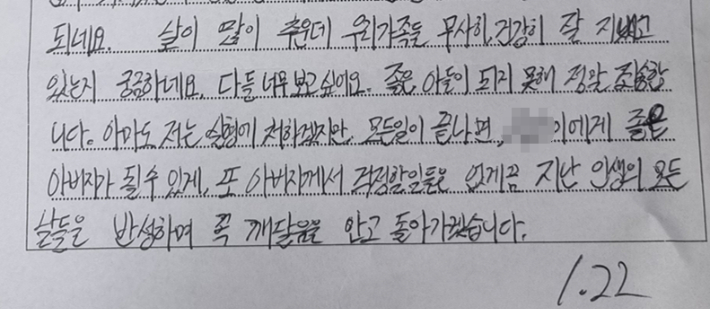 되네요. 날이 많이 추운데 우리가족들 무사히, 건강히 잘 지내고
있는지 궁금하네요. 다들 너무 보고 싶어요. 좋은 아들이 되지 못해 정말 죄송합
니다. 아마도 저는 실형에 처하겠지만, 모든일이 끝나면, 이에게 좋은
아버지가 될 수 있게, 또 아버지께서 걱정할일들은 없게끔 지난 인생의 모든
날들을 반성하며 꼭 깨달음을 안고 돌아가겠습니다.
1.22